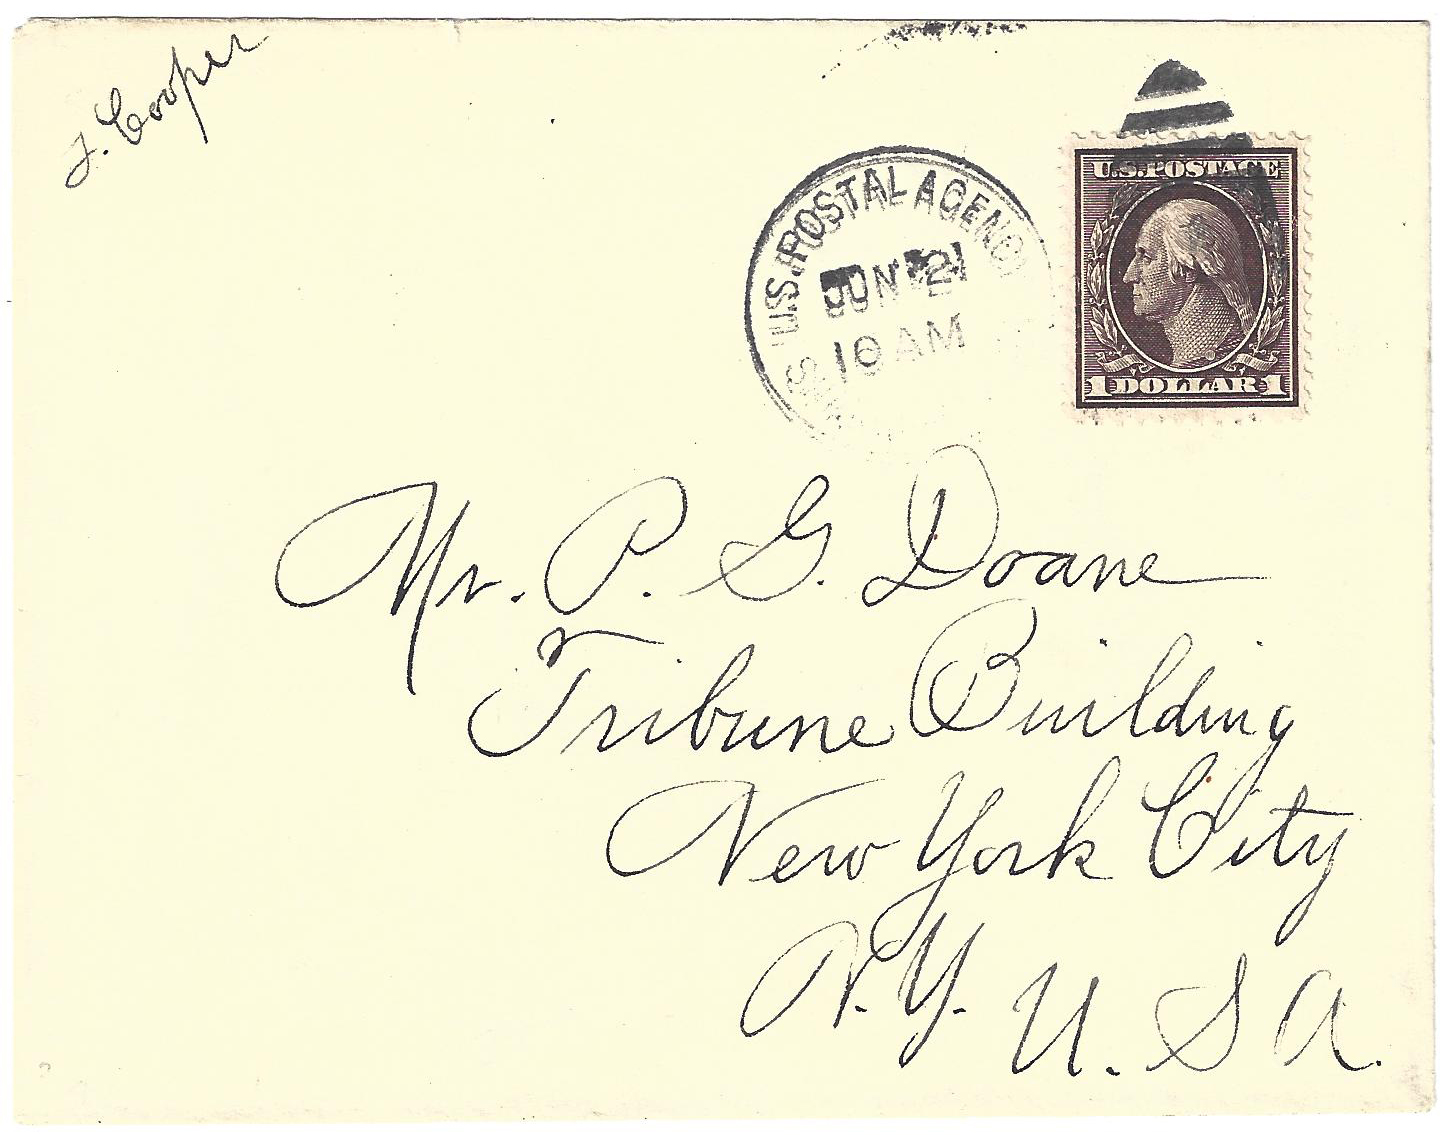 F. Cooper
U.S. POSTAL AGENCY
JUN 21
10 AM
U.S. POSTAGE
1 DOLLAR 1
Mr. P. G. Doane
Tribune Building
New York City
N. Y. U. S A.